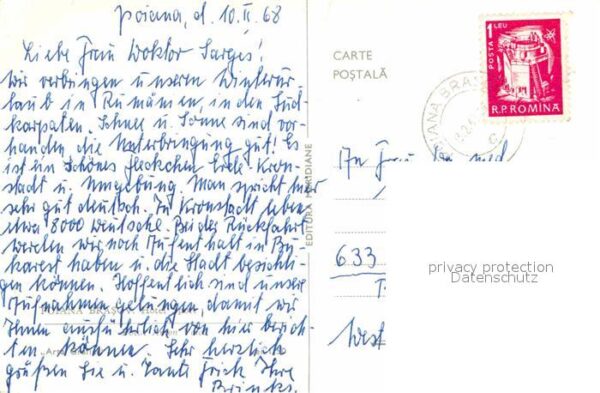 Poiana, d. 10.II.68
Liebe Frau Doktor Sarges!
Wir verbringen unseren Winterur-
laub in Rumänien, in den Süd-
karpaten. Schnee u. Sonne sind vor-
handen, die Unterbringung gut! Es
ist ein schönes Fleckchen Erde. Kron-
stadt u. Umgebung. Man spricht hier
sehr gut deutsch. In Kronstadt leben
etwa 8000 Deutsche. Bei der Rückfahrt
werden wir noch Aufenthalt in Bu-
karest haben u. die Stadt besichti-
gen können. Hoffentlich sind unsere
Aufnahmen gelungen damit wir
Ihnen ausführlich von hier berich-
ten können. Sehr herzlich
grüßen Sie u. Ihre
Brinks.
POIANA BRAȘOV.
EDITURA MERIDIANE
CARTE
POȘTALĂ
POSTA 1 LEU
R.P.ROMINA
POIANA BRAȘOV
An Frau Dr. med
633
West
privacy protection
Datenschutz